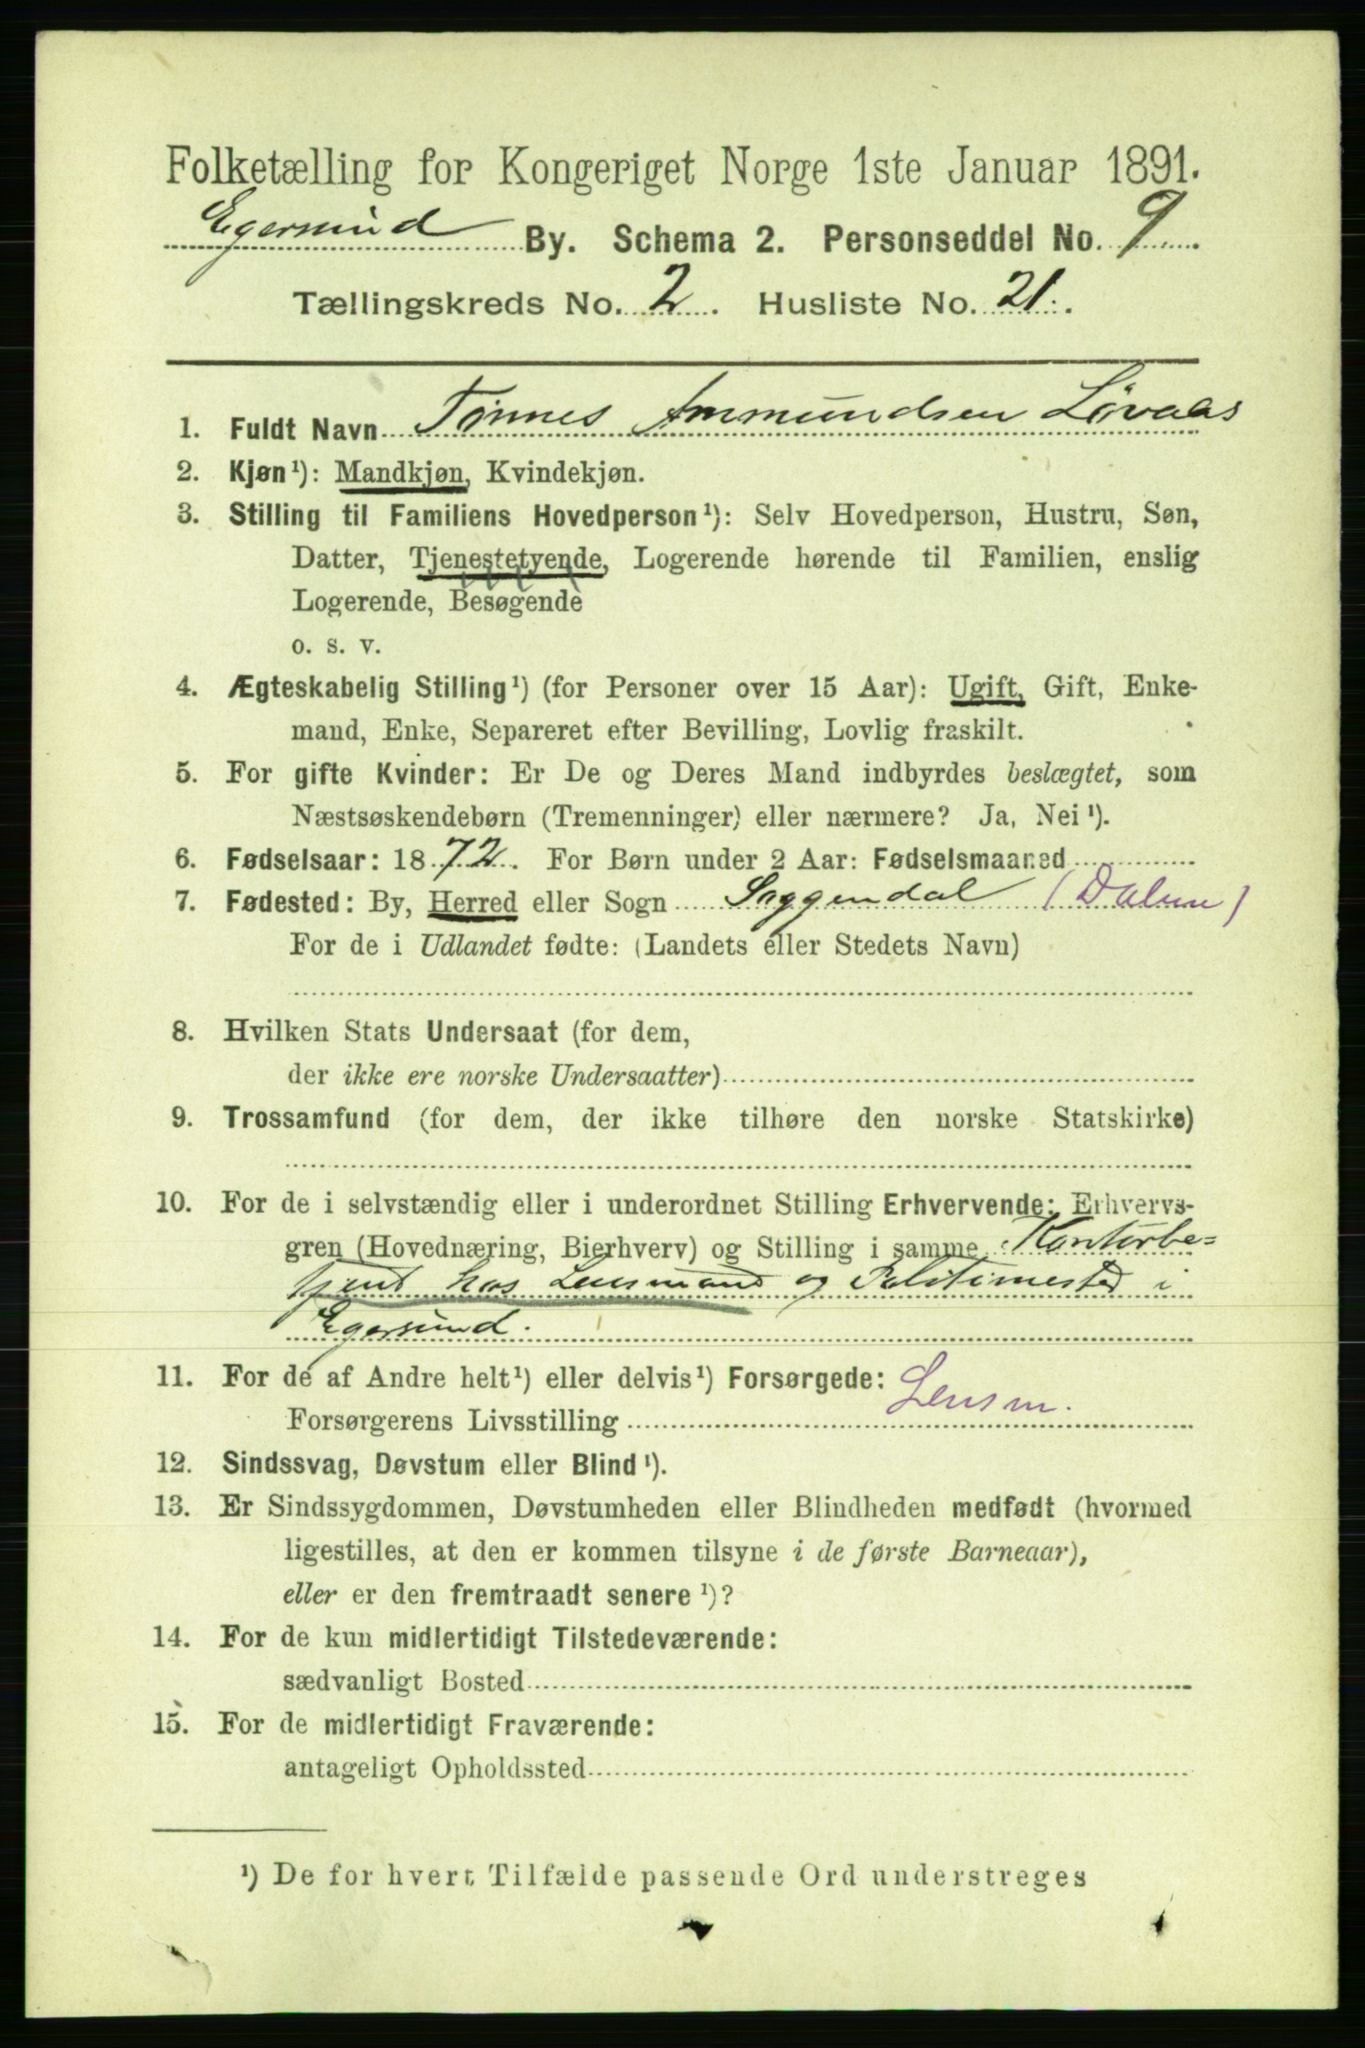 Folketælling for Kongeriget Norge 1ste Januar 1891.
Egersund By. Schema 2. Personseddel No. 9
Tællingskreds No. 2. Husliste No. 21.
1. Fuldt Navn Tønnes Ammundsen Løvaas
2. Kjøn¹): Mandkjøn, Kvindekjøn.
3. Stilling til Familiens Hovedperson¹): Selv Hovedperson, Hustru, Søn,
Datter, Tjenestetyende, Logerende hørende til Familien, enslig
Logerende, Besøgende
o. s. v.
4. Ægteskabelig Stilling¹) (for Personer over 15 Aar): Ugift, Gift, Enke-
mand, Enke, Separeret efter Bevilling, Lovlig fraskilt.
5. For gifte Kvinder: Er De og Deres Mand indbyrdes beslægtet, som
Næstsøskendebørn (Tremenninger) eller nærmere? Ja, Nei¹).
6. Fødselsaar: 1872. For Børn under 2 Aar: Fødselsmaaned
7. Fødested: By, Herred eller Sogn Soggendal (Dalene)
For de i Udlandet fødte: (Landets eller Stedets Navn)
8. Hvilken Stats Undersaat (for dem,
der ikke ere norske Undersaatter)
9. Trossamfund (for dem, der ikke tilhøre den norske Statskirke)
10. For de i selvstændig eller i underordnet Stilling Erhvervende: Erhvervs-
gren (Hovednæring, Bierhverv) og Stilling i samme Kontorbe=
tjent hos Lensmand og Politimester i
Egersund.
11. For de af Andre helt¹) eller delvis¹) Forsørgede:
Forsørgerens Livsstilling Lensm.
12. Sindssvag, Døvstum eller Blind¹).
13. Er Sindssygdommen, Døvstumheden eller Blindheden medfødt (hvormed
ligestilles, at den er kommen tilsyne i de første Barneaar),
eller er den fremtraadt senere¹)?
14. For de kun midlertidigt Tilstedeværende:
sædvanligt Bosted
15. For de midlertidigt Fraværende:
antageligt Opholdssted
¹) De for hvert Tilfælde passende Ord understreges